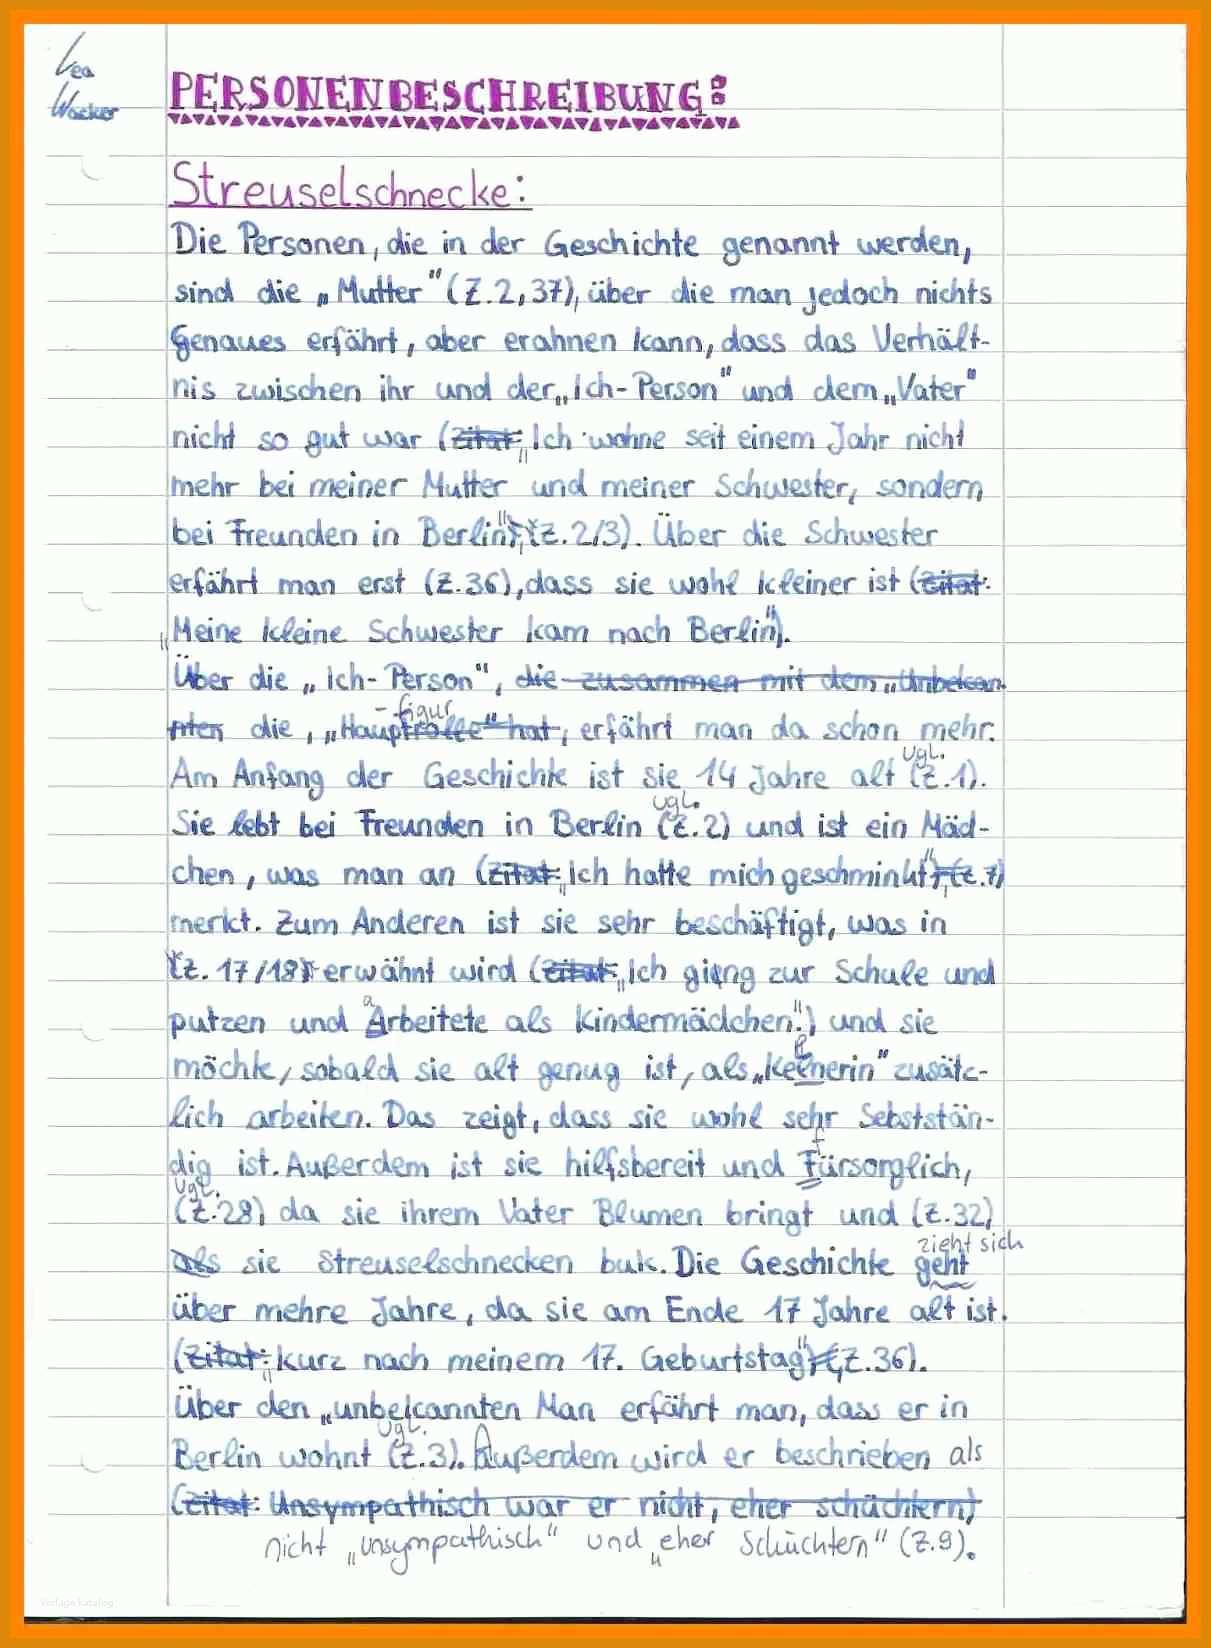 Lea
Wacker
PERSONENBESCHREIBUNG:
Streuselschnecke:
Die Personen, die in der Geschichte genannt werden,
sind die „Mutter" (Z.2,37), über die man jedoch nichts
Genaues erfährt, aber erahnen kann, dass das Verhält-
nis zwischen ihr und der „Ich-Person" und dem „Vater"
nicht so gut war (Zitat: „Ich wohne seit einem Jahr nicht
mehr bei meiner Mutter und meiner Schwester, sondern
bei Freunden in Berlin", (Z.2/3). Über die Schwester
erfährt man erst (Z.36), dass sie wohl kleiner ist (Zitat:
„Meine kleine Schwester kam nach Berlin").
Über die „Ich-Person", die zusammen mit dem „Unbekan
nten die, „Hauptrolle" hat, erfährt man da schon mehr.
-figur
Am Anfang der Geschichte ist sie 14 Jahre alt (vgl. Z.1).
Sie lebt bei Freunden in Berlin (vgl. Z.2) und ist ein Mäd-
chen, was man an (Zitat: „Ich hatte mich geschminkt"), (Z.7)
merkt. Zum Anderen ist sie sehr beschäftigt, was in
(Z. 17/18) erwähnt wird (Zitat: „Ich ging zur Schule und
putzen und Arbeitete als Kindermädchen.") und sie
a
möchte, sobald sie alt genug ist, als „Kelnerin" zusätz-
l
lich arbeiten. Das zeigt, dass sie wohl sehr Sebststän-
dig ist. Außerdem ist sie hilfsbereit und Fürsorglich,
f
(vgl. Z.28) da sie ihrem Vater Blumen bringt und (Z.32)
als sie Streuselschnecken buk. Die Geschichte geht
zieht sich
über mehre Jahre, da sie am Ende 17 Jahre alt ist.
(Zitat: „kurz nach meinem 17. Geburtstag") (Z.36).
Über den „unbekannten Man erfährt man, dass er in
Berlin wohnt (vgl. Z.3). Außerdem wird er beschrieben als
(Zitat: Unsympathisch war er nicht, eher schüchtern)
nicht „unsympathisch" und „eher Schüchtern" (Z.9).
vorlage katalog